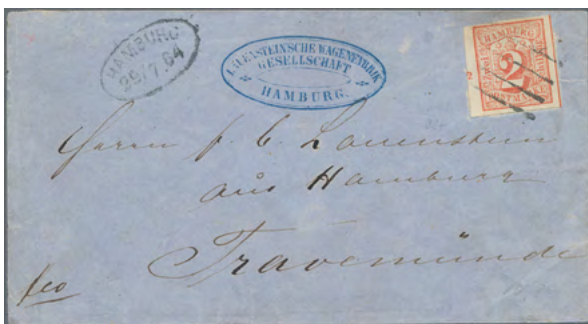 HAMBURG
29/7.64
LAUENSTEINSCHE WAGENFABRIK
GESELLSCHAFT
HAMBURG.
HAMBURG
2
POSTMARKE
Herrn J. C. Lauenstein
aus Hamburg
Travemünde
fco